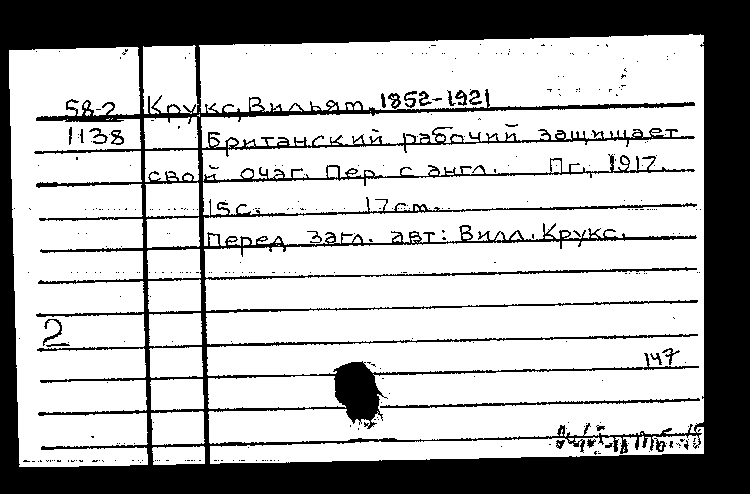 58-2 Крукс, Вильям, 1852-1921
1138 Британский рабочий защищает
свой очаг. Пер. с англ. Пг., 1917.
15с. 17см.
Перед загл. авт: Вилл. Крукс.
2
147